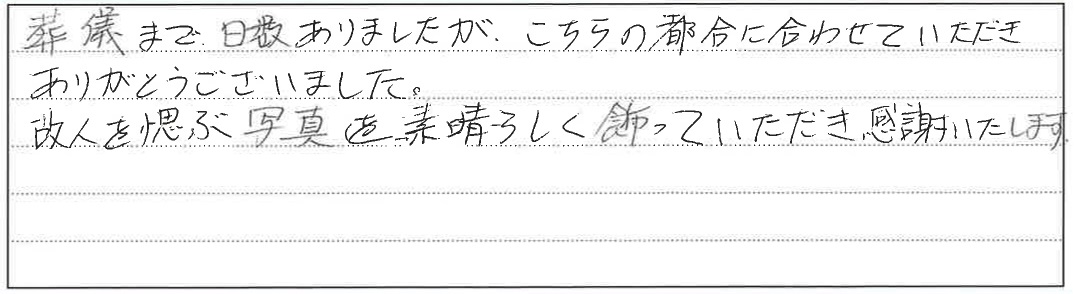 葬儀まで、日数ありましたが、こちらの都合に合わせていただき
ありがとうございました。
故人を偲ぶ写真を素晴らしく飾っていただき感謝いたします。